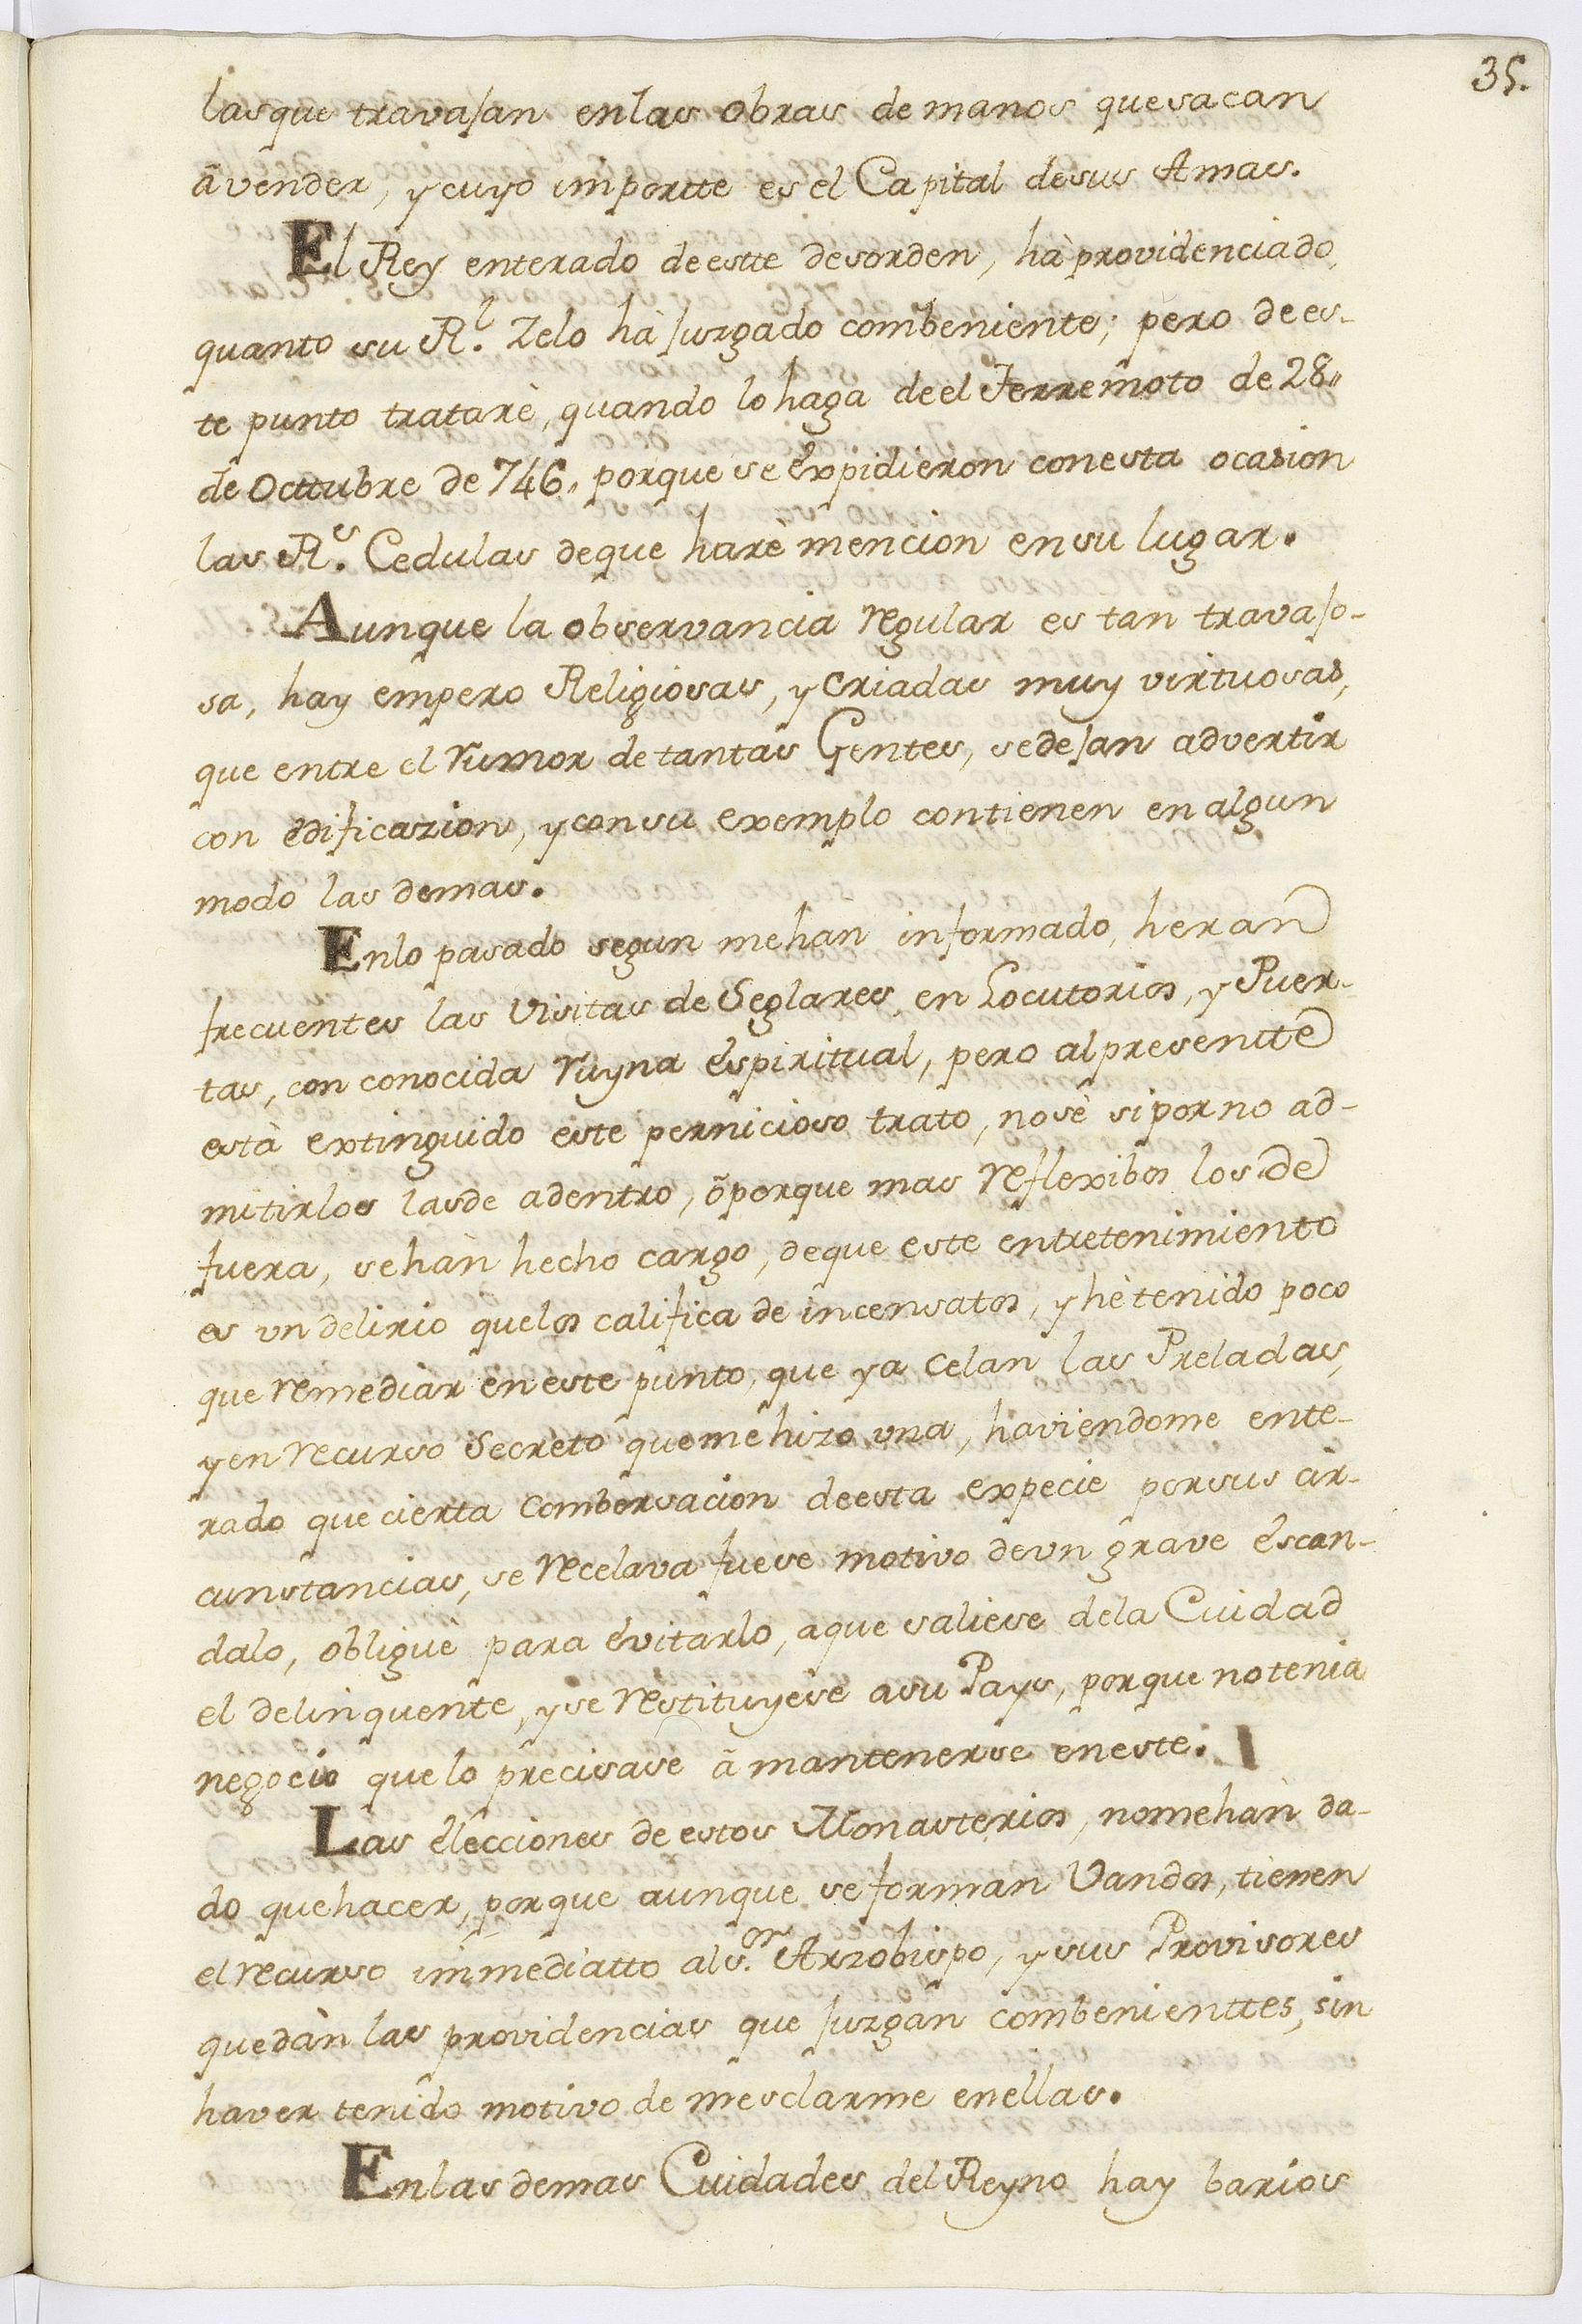 35.
las que travajan en las obras de manos que sacan
à vender, y cuyo importte es el Capital de sus Amas.
El Rey enterado de estte desorden, hà providenciado,
quanto su R.l Zelo hà juzgado combeniente; pero de es-
te punto tratarè, quando lo haga de el Terremoto de 28"
de Octtubre de 746" porque se expidieron con esta ocasion
las R.s Cedulas de que harè mencion en su lugar.
Aunque la observancia regular es tan travajo-
sa, hay empero Religiosas, y criadas muy virtuosas,
que entre el rumor de tantas Gentes, se dejan advertir
con edificazion, y con su exemplo contienen en algun
modo las demas.
En lo pasado segun me han informado, heran
frecuentes las Visitas de Seglares, en Locutorios, y Puer-
tas, con conocida ruyna espiritual, pero al presentte
està extinguido este pernicioso trato, no sè si por no ad-
mitirlos las de adentro, ò porque mas reflexibos los de
fuera, se hàn hecho cargo, de que este entretenimiento
es un delirio que los califica de incensatos, y hè tenido poco
que remediar en este punto, que ya celan las Preladas,
y en recurso Secreto que me hizo una, haviendome ente-
rado que cierta combersacion de esta expecie por sus cir-
cunstancias, se recelava fuese motivo de un grave escan-
dalo, obliguè para evitarlo, a que saliese de la Cuidad
el delinquente, y se restituyese a su Pays, porque no tenia
negocio que lo precisase à mantenerse en este.
Las elecciones de estos Monasterios, no me hàn da-
do que hacer, porque aunque se forman Vandos, tienen
el recurso immediatto al S.or Arzobispo, y sus Provisores
que dàn las providencias que juzgàn combenienttes, sin
haver tenido motivo de mesclarme en ellas.
En las demas Cuidades del Reyno hay barios